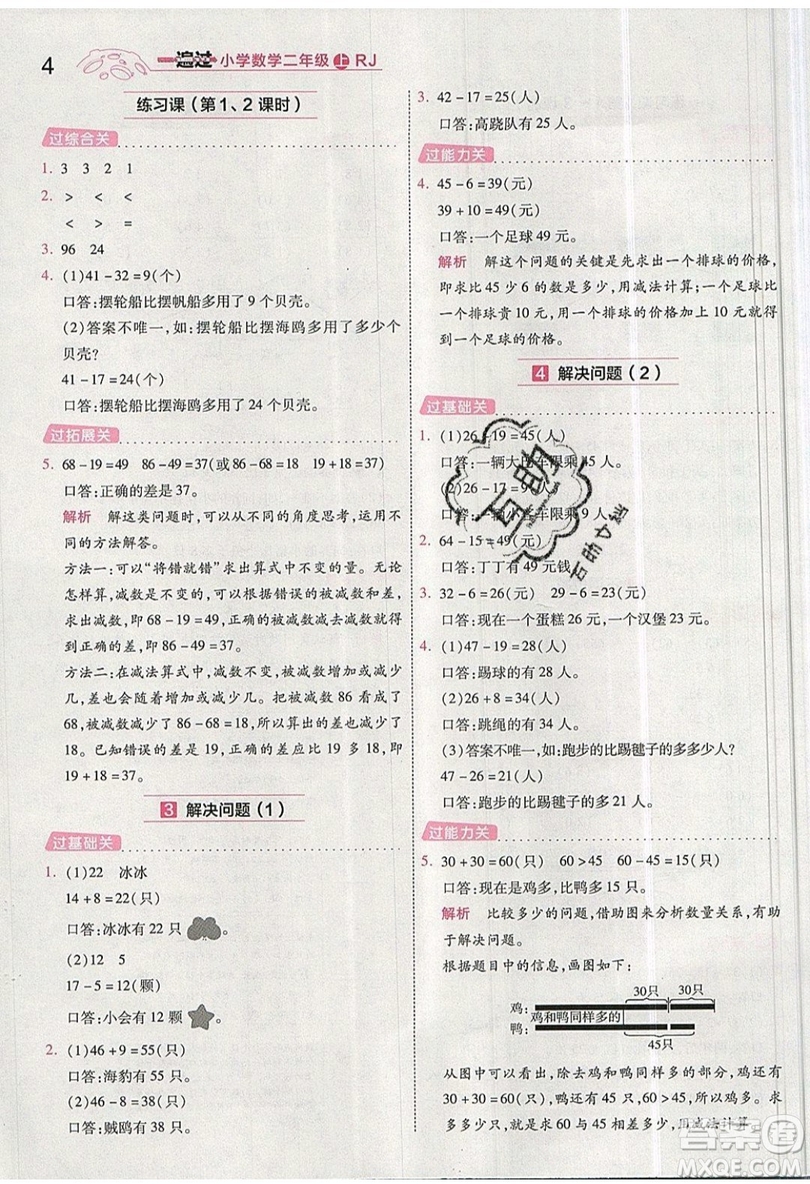 4
一遍过 小学数学二年级 上 RJ
练习课(第1、2课时)
过综合关
1. 3 3 2 1
2. > < <
< > =
3. 96 24
4. (1)41-32=9(个)
口答:摆轮船比摆帆船多用了9个贝壳。
(2)答案不唯一,如:摆轮船比摆海鸥多用了多少个
贝壳?
41-17=24(个)
口答:摆轮船比摆海鸥多用了24个贝壳。
过拓展关
5. 68-19=49 86-49=37(或86-68=18 19+18=37)
口答:正确的差是37。
解析 解这类问题时,可以从不同的角度思考,运用不
同的方法解答。
方法一:可以“将错就错”求出算式中的减数。无论
怎样算,减数是不变的,可以用错误的被减数减去差,
求出减数,即68-19=49,正确的被减数减去减数就得
到正确的差,即86-49=37。
方法二:在减法算式中,减数不变,被减数增加或减少
几,差也会随着增加或减少几。把被减数86看成了
68,被减数减少了86-68=18,所以算出的差也减少了
18。已知错误的差是19,正确的差应比19多18,即
19+18=37。
3 解决问题(1)
过基础关
1. (1)22 冰冰
14+8=22(只)
口答:冰冰有22只。
(2)12 5
17-5=12(颗)
口答:小会有12颗。
2. (1)46+9=55(只)
口答:海豹有55只。
(2)46-8=38(只)
口答:贼鸥有38只。
3. 42-17=25(人)
口答:高跷队有25人。
过能力关
4. 45-6=39(元)
39+10=49(元)
口答:一个足球49元。
解析 解这个问题的关键是先求出一个排球的价格,
即求比45少6的数是多少,用减法计算;一个足球比
一个排球贵10元,用一个排球的价格加上10元,就是
一个足球的价格。
4 解决问题(2)
过基础关
1. (1)26+19=45(人)
口答:一辆大车限乘45人。
(2)26-17=9(人)
口答:一辆小车限乘9人。
2. 64-15=49(元)
口答:丁丁有49元钱。
3. 32-6=26(元) 29-6=23(元)
口答:现在一个蛋糕26元,一个汉堡23元。
4. (1)47-19=28(人)
口答:踢球的有28人。
(2)26+8=34(人)
口答:跳绳的有34人。
(3)答案不唯一,如:跑步的比踢毽子的多多少人?
47-26=21(人)
口答:跑步的比踢毽子的多21人。
过能力关
5. 30+30=60(只) 60>45 60-45=15(只)
口答:现在是鸡多,比鸭多15只。
解析 比较多少的问题,借助图来分析数量关系,有助
于解决问题。
根据题目中的信息,画图如下:
30只 30只
鸡:
鸡和鸭同样多的
鸭:
45只
从图中可以看出,除去鸡和鸭同样多的部分,鸡剩下
30+30=60(只),鸭剩下45只,60>45,所以鸡多。求
多多少只,就是求60与45相差多少,用减法计算。
答案圈
MXQE.COM